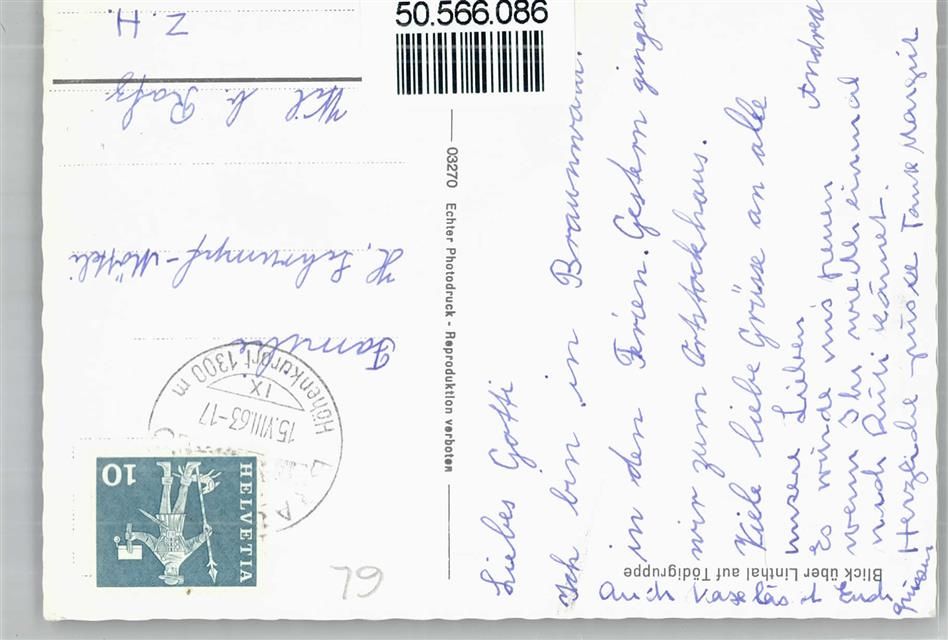 50.566.086
Liebes Gotti
Ich bin in Braunwain.
in den Ferien. Gestern gingen
wir zum Ortstockhaus.
Viele liebe Grüsse an alle
Andrea
unsere Lieben
Es würde uns freuen
wenn Ihr wieder einmal
nach Rüti kämet.
Herzliche grüsse Tante Margrit
Auch Euch
grüssen
Familie
H. Schrumpf-Mötteli
Wil b. Rafz
Z.H.
Blick über Linthal auf Tödigruppe
03270 Echter Photodruck - Reproduktion verboten
HELVETIA
10
Höhenkurort 1300 m
IX
15.VIII.63-17
79